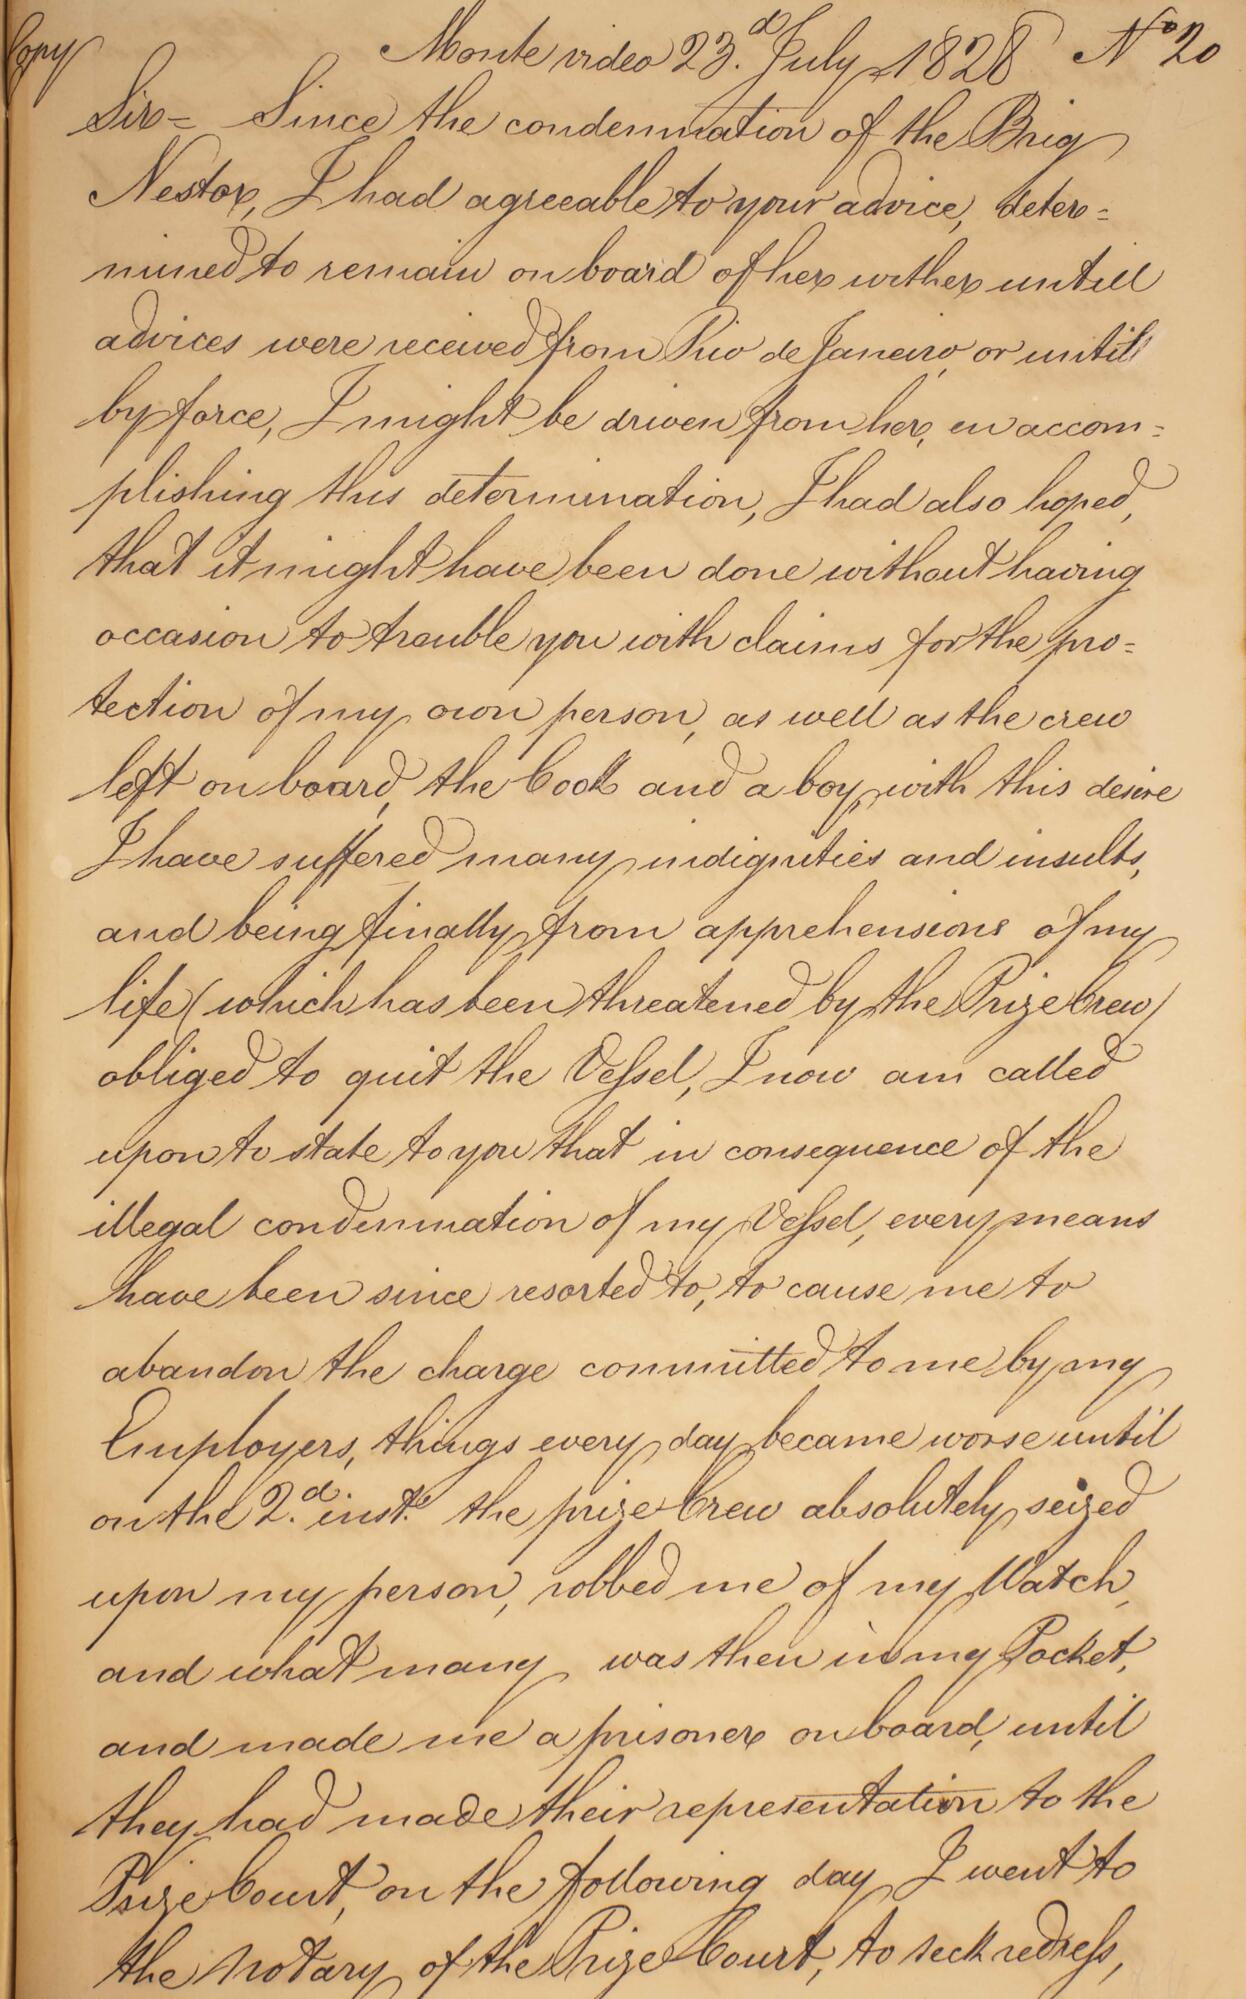 Copy
Monte video 23.d July 1828 No 20
Sir= Since the condemnation of the Brig
Nestor, I had agreeable to your advice, deter=
mined to remain on board of her wither untill
advices were received from Rio de Janeiro, or untill
by force, I might be driven from her, en accom=
plishing this determination, I had also hoped,
that it might have been done without having
occasion to trouble you with claims for the pro=
tection of my own person, as well as the crew
left on board, the Cook and a boy, with this desire
I have suffered many indignities and insults,
and being finally, from apprehensions of my
life (which has been threatened by the Prize Crew)
obliged to quit the Vessel, I now am called
upon to state to you that in consequence of the
illegal condemnation of my Vessel, every means
have been since resorted to, to cause me to
abandon the charge committed to me by my
Employers, things every day became worse until
on the 2.d inst. the prize Crew absolutely seized
upon my person, robbed me of my Watch,
and what many was then in my Pocket,
and made me a prisoner on board, until
they had made their representation to the
Prize Court, on the following day I went to
the notary of the Prize Court, to seek redress,